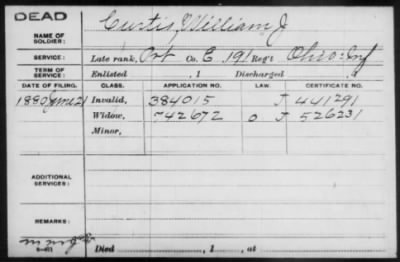 DEAD
NAME OF SOLDIER: Curtis, William J
SERVICE: Late rank, Pvt Co. E, 191 Reg't Ohio Inf
TERM OF SERVICE: Enlisted , 1 Discharged , 1
DATE OF FILING. CLASS. APPLICATION NO. LAW. CERTIFICATE NO.
1880 June 21 Invalid, 384015 J 441291
Widow, 742672 O J 526231
Minor,
ADDITIONAL SERVICES:
REMARKS:
Died , 1 , at